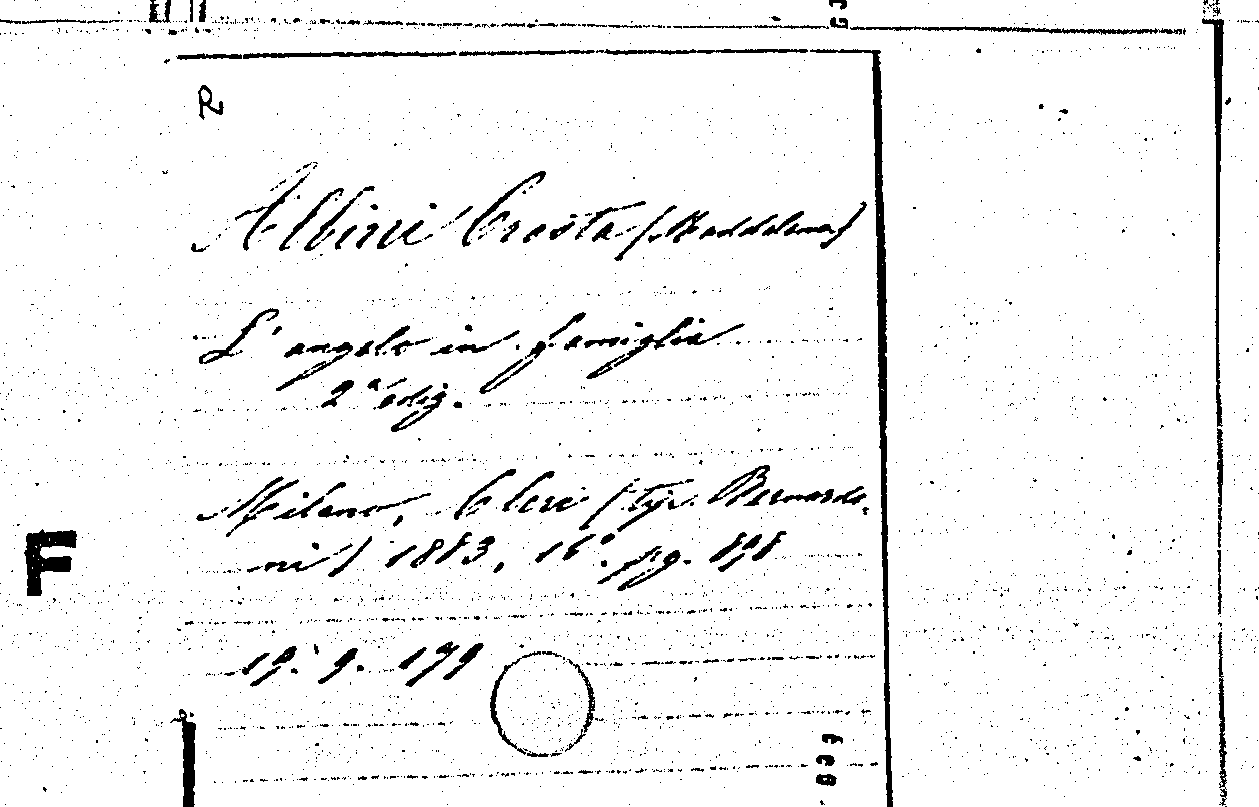 R
Albini Crosta (Maddalena)
L' angelo in famiglia
2ª ediz.
Milano, Cleri (tip. Bernardo-
ni) 1883, 16º. pg. 898
F
19. 9. 179